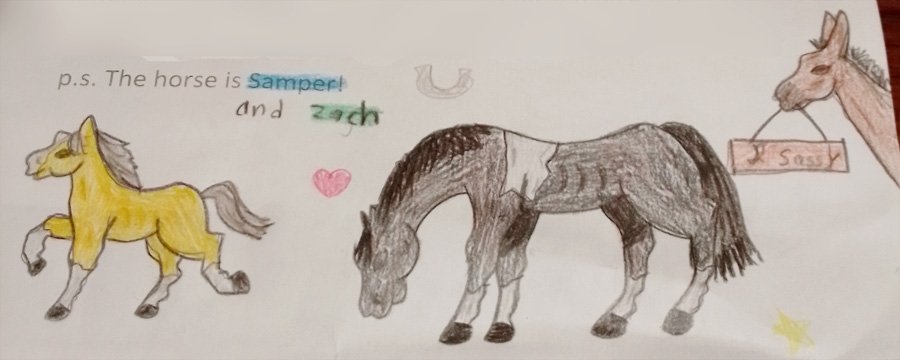 p.s. The horse is Samper!
and zach
& Sassy